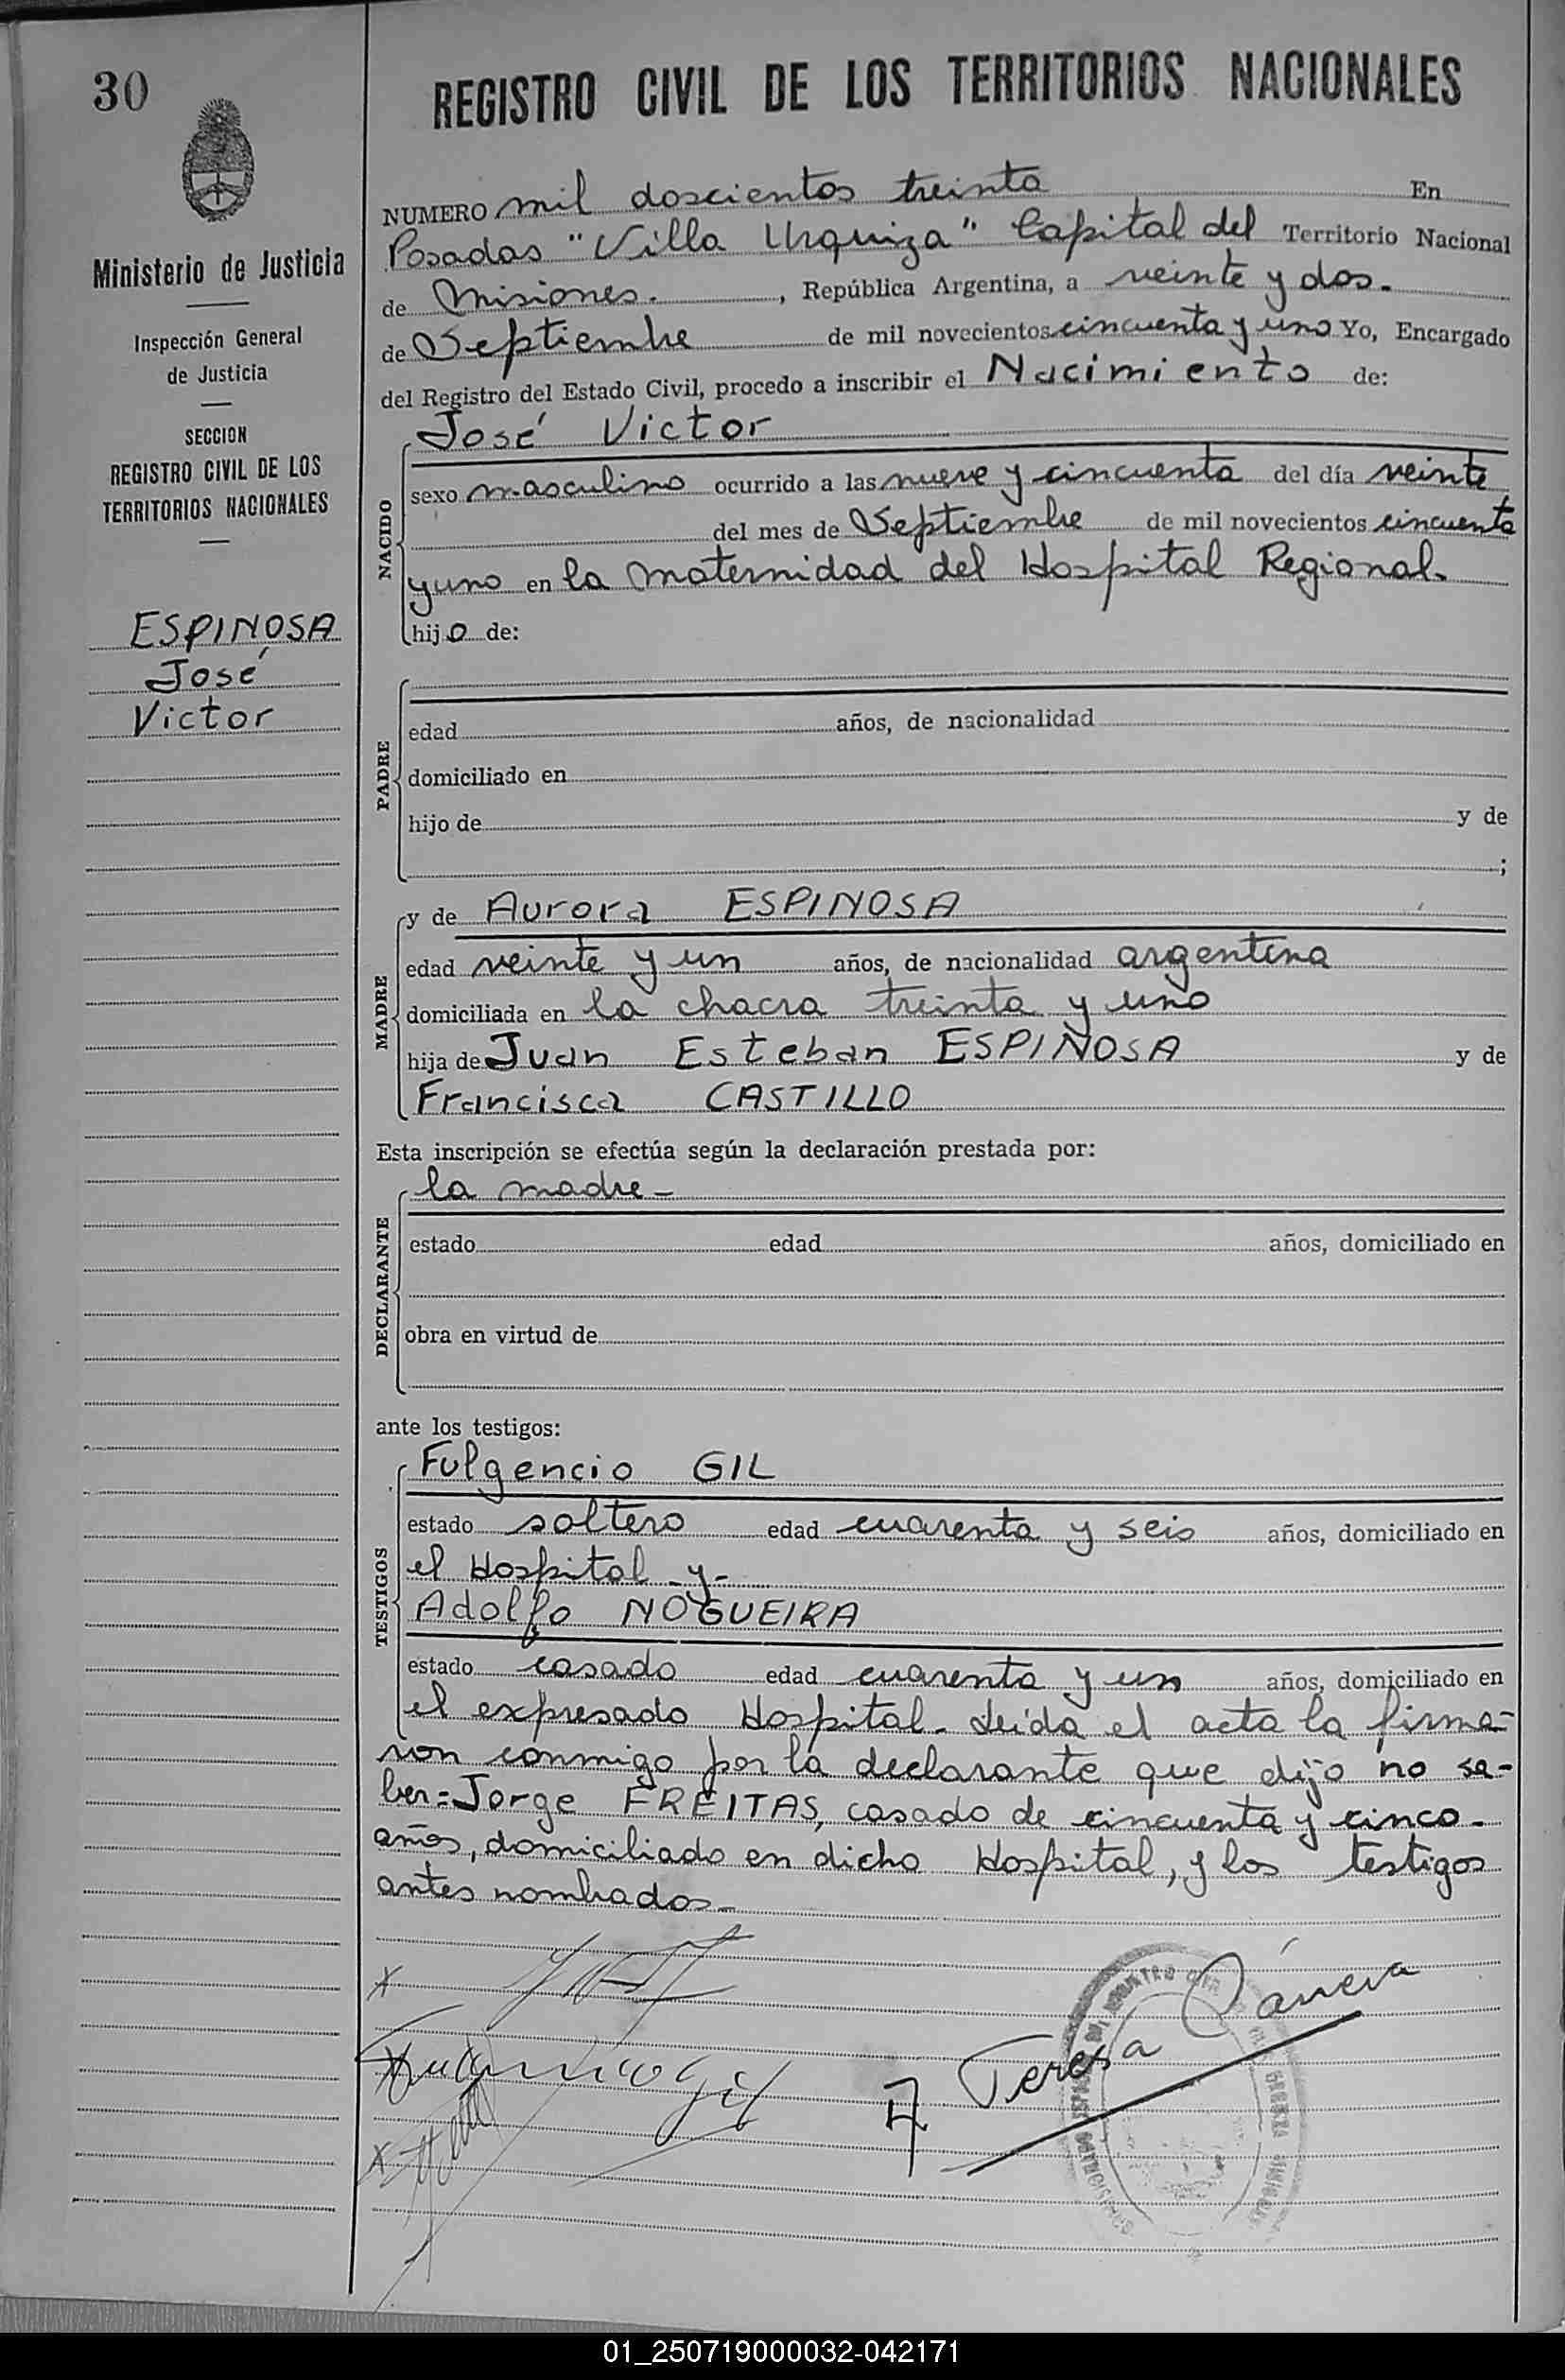 30
Ministerio de Justicia
Inspección General
de Justicia
SECCION
REGISTRO CIVIL DE LOS
TERRITORIOS NACIONALES
ESPINOSA
José
Victor
REGISTRO CIVIL DE LOS TERRITORIOS NACIONALES
NUMERO mil doscientos treinta En
Posadas "Villa Urquiza" Capital del Territorio Nacional
de Misiones. , República Argentina, a veinte y dos.
de Septiembre de mil novecientos cincuenta y uno Yo, Encargado
del Registro del Estado Civil, procedo a inscribir el Nacimiento de:
José Victor
NACIDO
sexo masculino ocurrido a las nueve y cincuenta del día veinte
del mes de Septiembre de mil novecientos cincuenta
y uno en la Maternidad del Hospital Regional.
hijo de:
PADRE
edad años, de nacionalidad
domiciliado en
hijo de y de
;
MADRE
y de Aurora ESPINOSA
edad veinte y un años, de nacionalidad argentina
domiciliada en la chacra treinta y uno
hija de Juan Esteban ESPINOSA y de
Francisca CASTILLO
Esta inscripción se efectúa según la declaración prestada por:
la madre-
DECLARANTE
estado edad años, domiciliado en
obra en virtud de
ante los testigos:
TESTIGOS
Fulgencio GIL
estado soltero edad cuarenta y seis años, domiciliado en
el Hospital -y-
Adolfo NOGUEIRA
estado casado edad cuarenta y un años, domiciliado en
el expresado Hospital- Leída el acta la firma-
ron conmigo por la declarante que dijo no sa-
ber=Jorge FREITAS, casado de cincuenta y cinco-
años, domiciliado en dicho Hospital, y los testigos
antes nombrados-
Teresa Cáneva
01_250719000032-042171